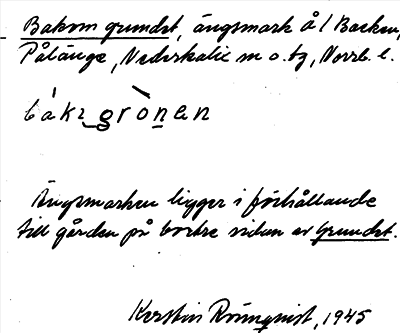 Bakom grundet, ängsmark å / Backen,
Pålänge, Nederkalix sn o. tg, Norrb. l.
båkzgrònen
Ängsmarken ligger i förhållande
till gården på bortre sidan av Grundet.
Kerstin Rönnqvist, 1945